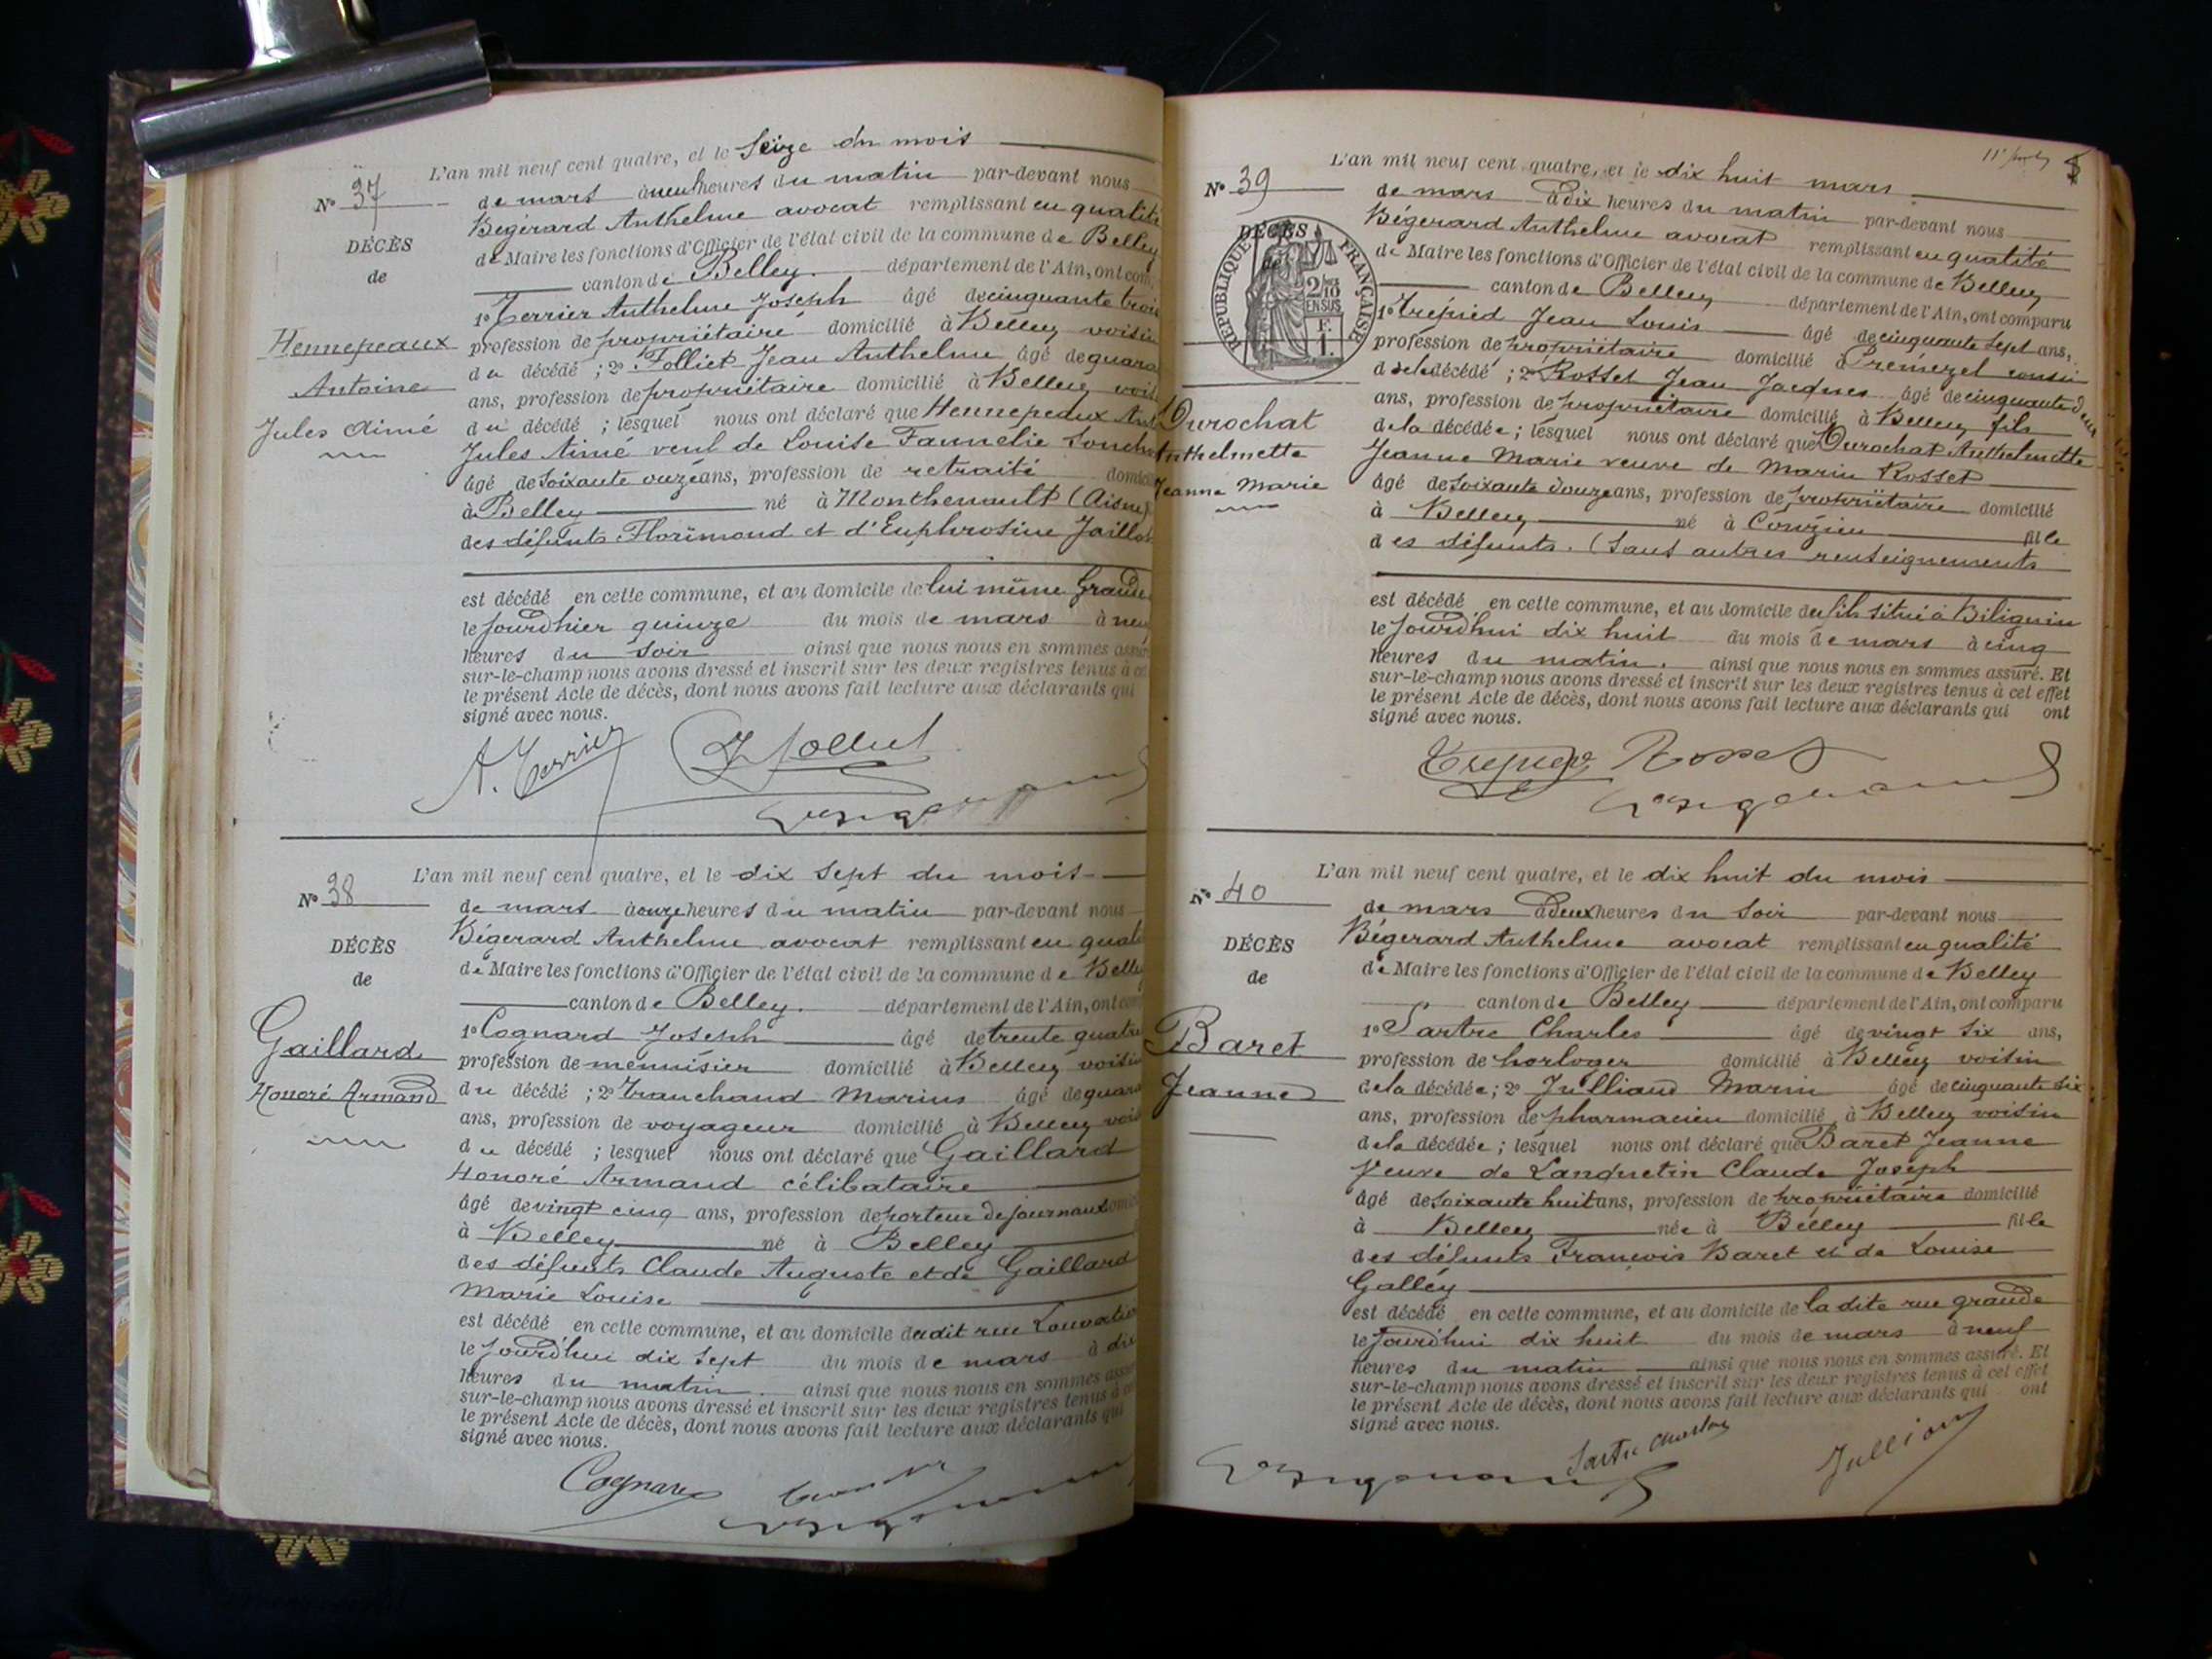 L'an mil neuf cent quatre, et le Seize du mois
N° 37
de mars à neuf heures du matin par-devant nous
Bégérard Anthelme avocat remplissant en qualité
DÉCÈS
de Maire les fonctions d'Officier de l'état civil de la commune de Belley
de
canton de Belley. département de l'Ain, ont com
1° Terrier Anthelme Joseph âgé de cinquante trois
Hennepeaux
profession de propriétaire domicilié à Belley voisin
du décédé ; 2° Folliet Jean Anthelme âgé de quara
Antoine
ans, profession de propriétaire domicilié à Belley voisi
Jules Aimé
du décédé ; lesquel nous ont déclaré que Hennepeaux Ant
Jules Aimé veuf de Louise
âgé de Soixante onze ans, profession de retraité domici
à Belley né à Monthenault (Aisne)
des défunts Florimond et d'Euphrosine Jaillot
est décédé en cette commune, et au domicile de lui même Grande
le jourd'hier quinze du mois de mars à neuf
heures du Soir ainsi que nous nous en sommes assu
sur-le-champ nous avons dressé et inscrit sur les deux registres tenus à ce
le présent Acte de décès, dont nous avons fait lecture aux déclarants qui
signé avec nous.
A. Terrier
Folliet
L'an mil neuf cent quatre, et le dix Sept du mois
N° 38
de mars à onze heures du matin par-devant nous
Bégerard Anthelme avocat remplissant en quali
DÉCÈS
de Maire les fonctions d'Officier de l'état civil de la commune de Belle
de
canton de Belley. département de l'Ain, ont com
1° Cognard Joseph âgé de trente quatre
Gaillard
profession de menuisier domicilié à Belley voisin
Honoré Armand
du décédé ; 2° Tranchand Marius âgé de quara
ans, profession de voyageur domicilié à Belley voi
du décédé ; lesquel nous ont déclaré que Gaillard
Honoré Armand célibataire
âgé de vingt cinq ans, profession de porteur de journaux domici
à Belley né à Belley
des défunts Claude Auguste et de Gaillard
Marie Louise
est décédé en cette commune, et au domicile du dit rue
le jourd'hui dix Sept du mois de mars à dix
heures du matin. ainsi que nous nous en sommes assu
sur-le-champ nous avons dressé et inscrit sur les deux registres tenus à ce
le présent Acte de décès, dont nous avons fait lecture aux déclarants qui
signé avec nous.
Cognard
L'an mil neuf cent quatre, et le dix huit mars
N° 39
de mars à dix heures du matin par-devant nous
Bégerard Anthelme avocat remplissant en qualité
DÉCÈS
de
RÉPUBLIQUE FRANÇAISE
2/10 EN SUS
1 F.
de Maire les fonctions d'Officier de l'état civil de la commune de Belley
canton de Belley département de l'Ain, ont comparu
1° Trépied Jean Louis âgé de cinquante Sept ans,
profession de propriétaire domicilié à Prémeyzel cousin
de la décédé ; 2° Rosset Jean Jacques âgé de cinquante deux
ans, profession de propriétaire domicilié à Belley fils
Durochat
Anthelmette
Jeanne Marie
de la décédée ; lesquel nous ont déclaré que Durochat Anthelmette
Jeanne Marie veuve de Marin Rosset
âgé de Soixante douze ans, profession de propriétaire domicilié
à Belley né à Conzieu fille
des défunts. (Sans autres renseignements
est décédé en cette commune, et au domicile du fils situé à Biliguin
le jourd'hui dix huit du mois de mars à cinq
heures du matin. ainsi que nous nous en sommes assuré. Et
sur-le-champ nous avons dressé et inscrit sur les deux registres tenus à cet effet
le présent Acte de décès, dont nous avons fait lecture aux déclarants qui ont
signé avec nous.
Rosset
L'an mil neuf cent quatre, et le dix huit du mois
N° 40
de mars à deux heures du Soir par-devant nous
Bégerard Anthelme avocat remplissant en qualité
DÉCÈS
de Maire les fonctions d'Officier de l'état civil de la commune de Belley
de
canton de Belley département de l'Ain, ont comparu
1° Sartre Charles âgé de vingt Six ans,
Baret
profession de horloger domicilié à Belley voisin
Jeanne
de la décédée ; 2° Julliand Marin âgé de cinquante Six
ans, profession de pharmacien domicilié à Belley voisin
de la décédée ; lesquel nous ont déclaré que Baret Jeanne
Veuve de Lanquetin Claude Joseph
âgé de Soixante huit ans, profession de propriétaire domicilié
à Belley née à Belley fille
des défunts François Baret et de Louise
Galley
est décédé en cette commune, et au domicile de la dite rue grande
le jourd'hui dix huit du mois de mars à neuf
heures du matin ainsi que nous nous en sommes assuré. Et
sur-le-champ nous avons dressé et inscrit sur les deux registres tenus à cet effet
le présent Acte de décès, dont nous avons fait lecture aux déclarants qui ont
signé avec nous.
Sartre Charles
Julliand